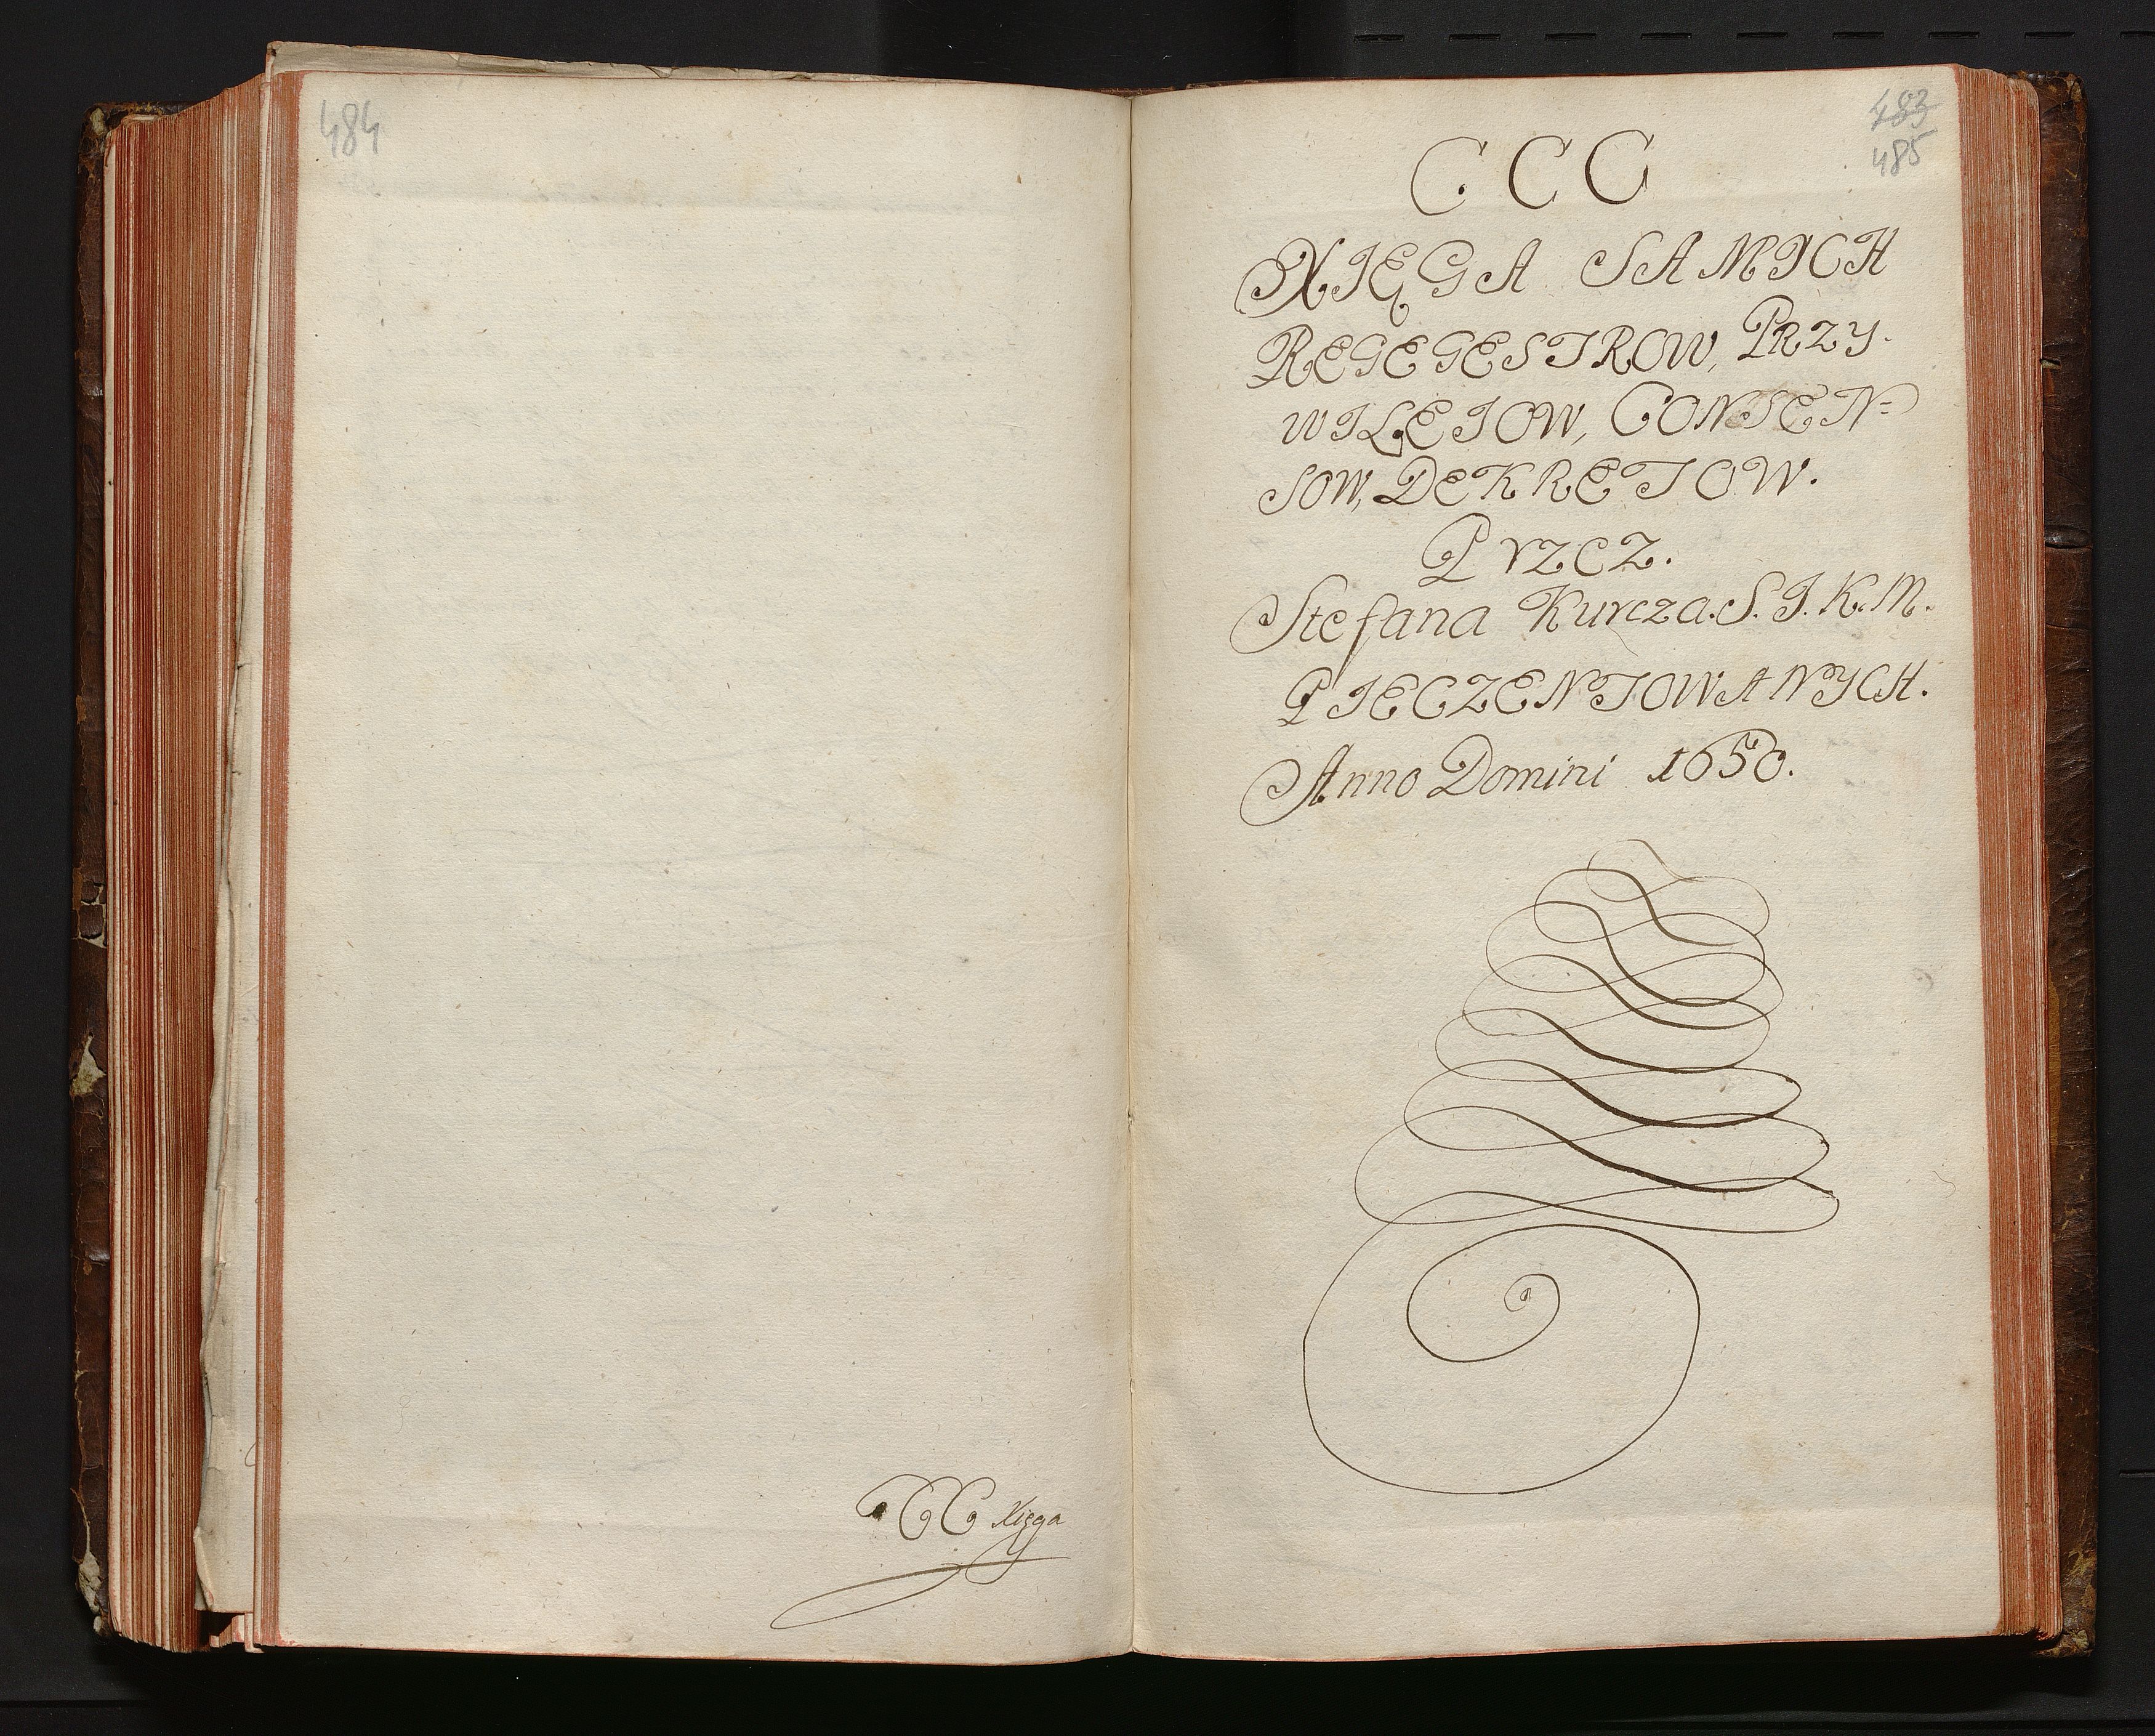 484
CCC Xięga
483
485
CCC
XIĘGA SAMYCH
REGEGESTROW, PRZY-
WILEIOW, CONSEN=
SOW, DEKRETOW.
PrzCz.
Stefana Kurcza. S. J. K. M.
PIECZENTOWANYCH.
Anno Domini 1650.